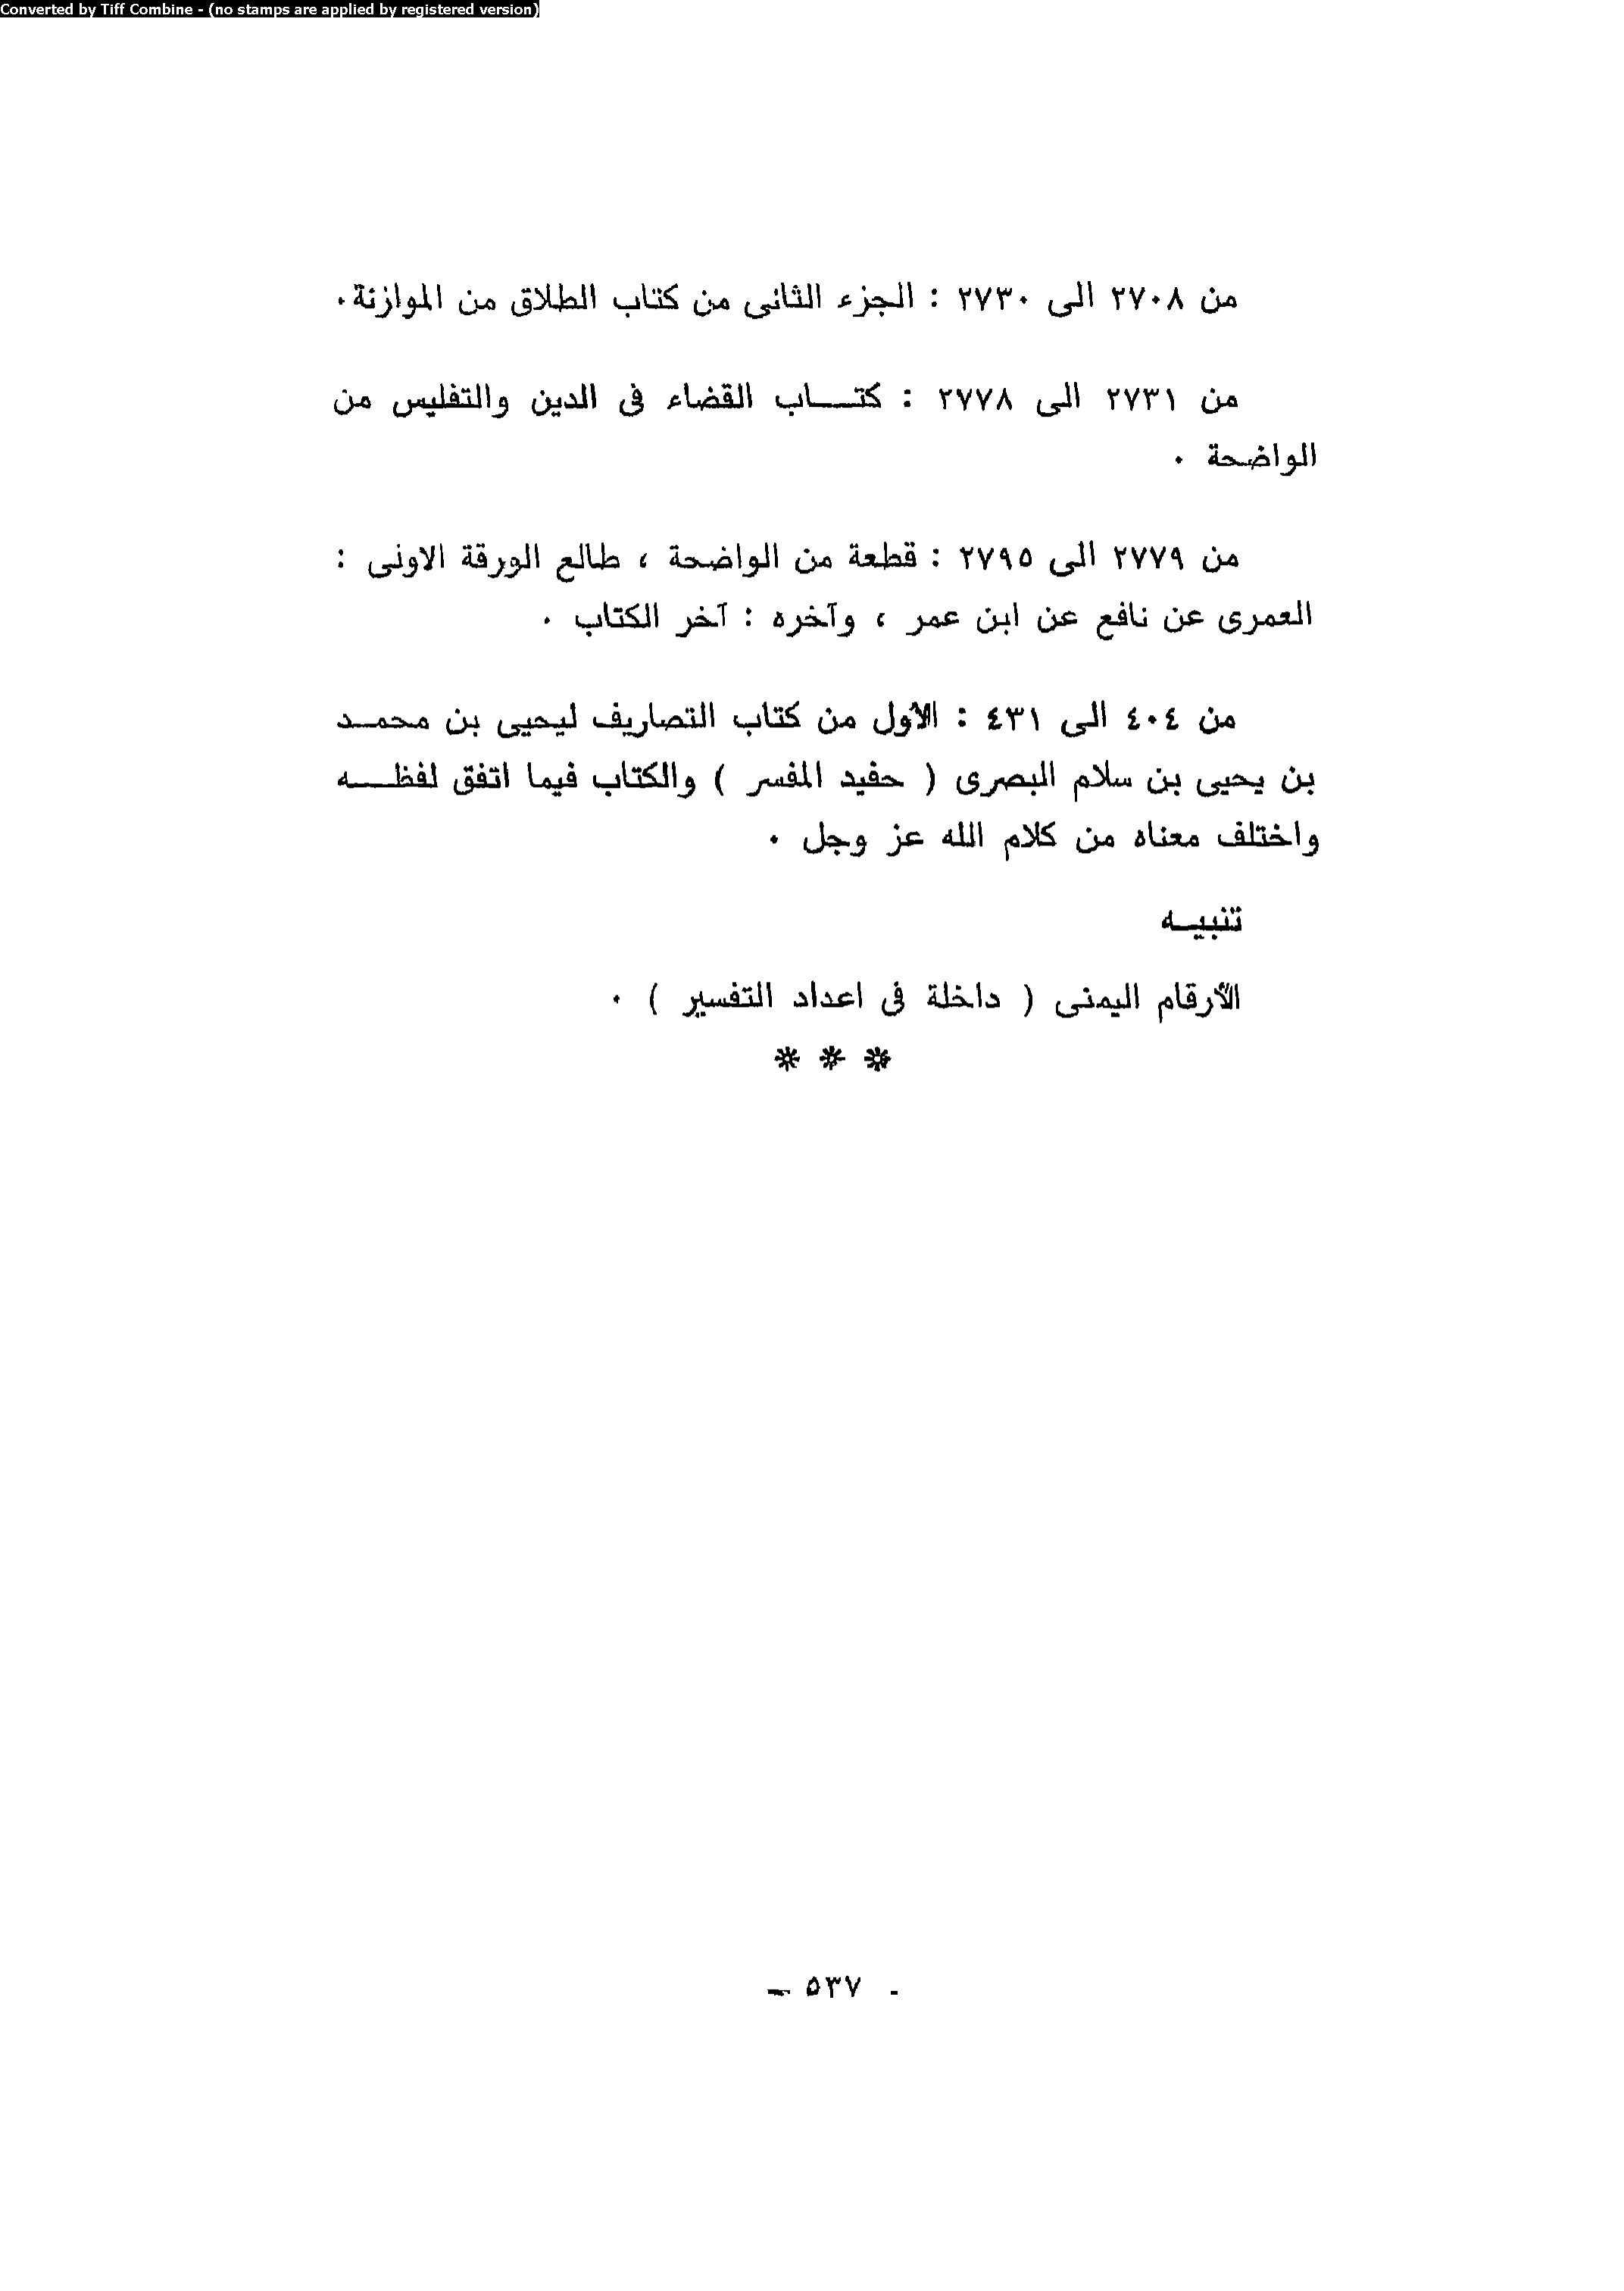 Converted by Tiff Combine - (no stamps are applied by registered version)
من ٢٧٠٨ الى ٢٧٣٠ : الجزء الثانى من كتاب الطلاق من الموازنة٠
من ٢٧٣١ الى ٢٧٧٨ : كتـــاب القضاء فى الدين والتفليس من
الواضحة ٠
من ٢٧٧٩ الى ٢٧٩٥ : قطعة من الواضحة ، طالع الورقة الاونى :
العمرى عن نافع عن ابن عمر ، وآخره : آخر الكتاب ٠
من ٤٠٤ الى ٤٣١ : الأول من كتاب التصاريف ليحيى بن محمــد
بن يحيى بن سلام البصرى ( حفيد المفسر ) والكتاب فيما اتفق لفظـــه
واختلف معناه من كلام الله عز وجل ٠
تنبيــه
الأرقام اليمنى ( داخلة فى اعداد التفسير ) ٠
* * *
- ٥٣٧ -